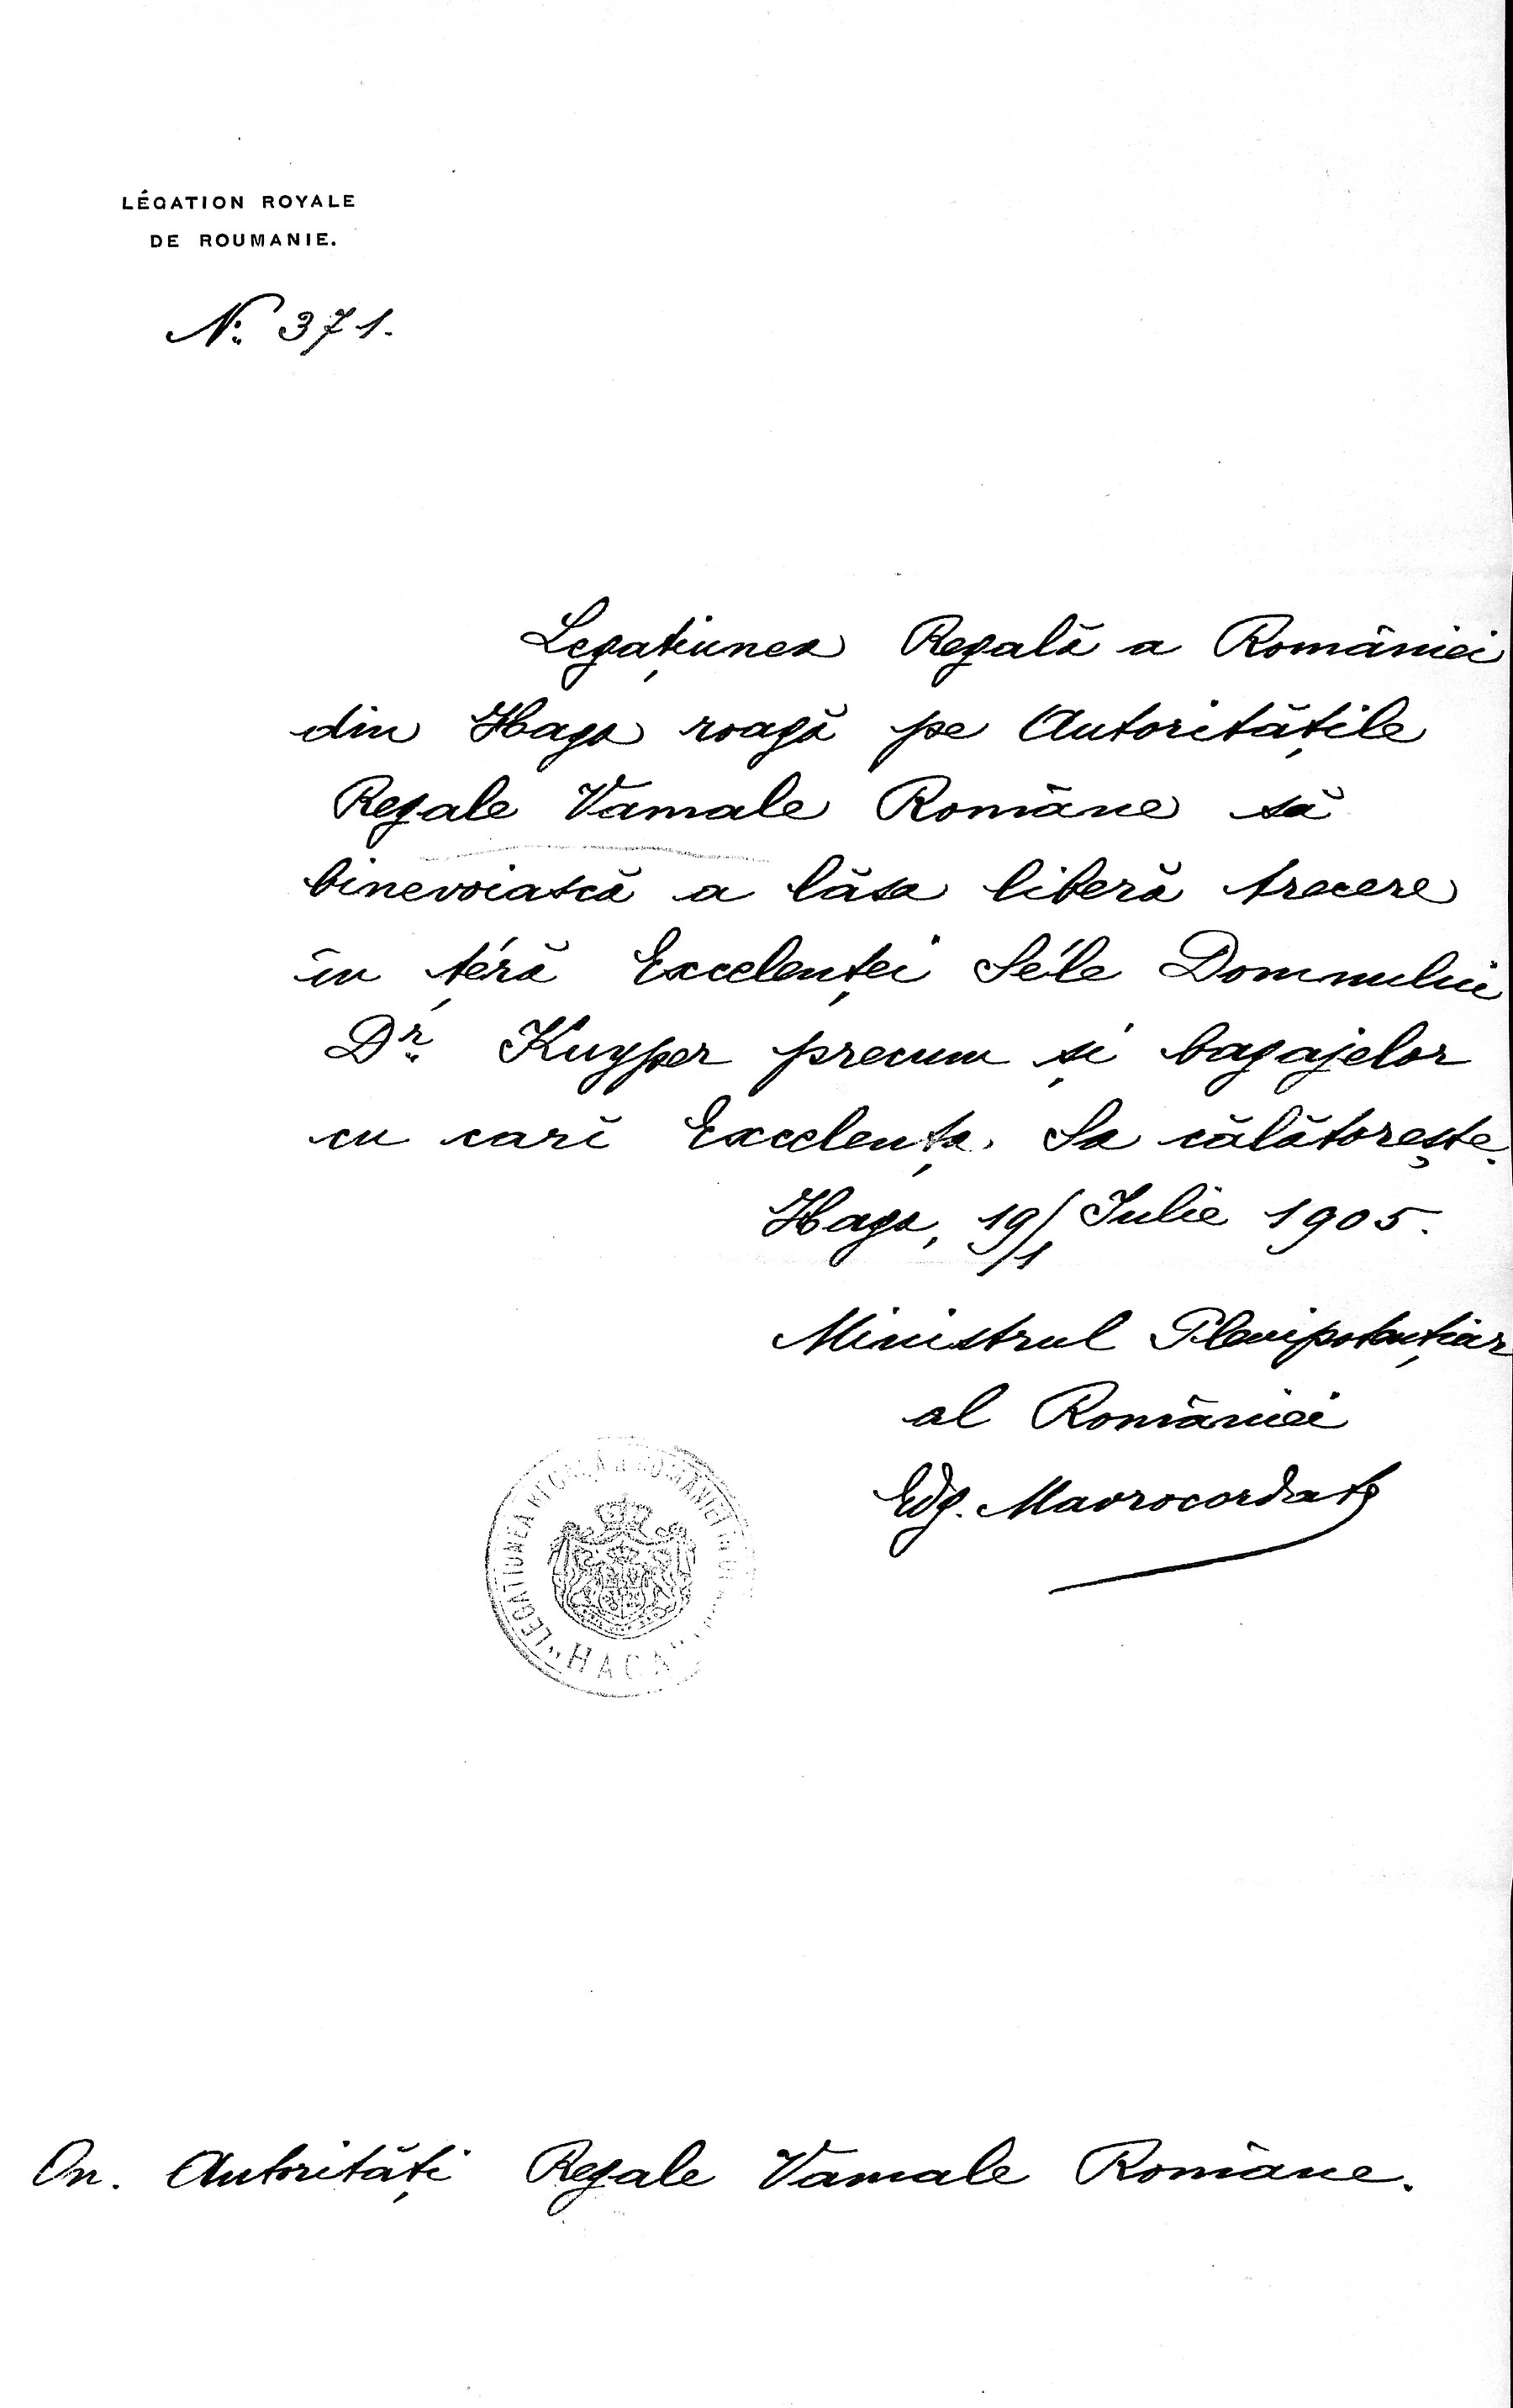 LÉGATION ROYALE
DE ROUMANIE.
No. 371.
Legațiunea Regală a României
din Haga roagă pe Autoritățile
Regale Vamale Române să
binevoiască a lăsa liberă trecere
în țéră Excelenței Séle Domnului
Dr. Kuyper precum și bagajelor
cu cari Excelența Sa călătorește.
Haga, 19/1 Iulie 1905.
Ministrul Plenipotențiar
al României
Edg. Mavrocordato
LEGATIUNEA REGALĂ A ROMÂNIEI
"HAGA"
On. Autorități Regale Vamale Române.